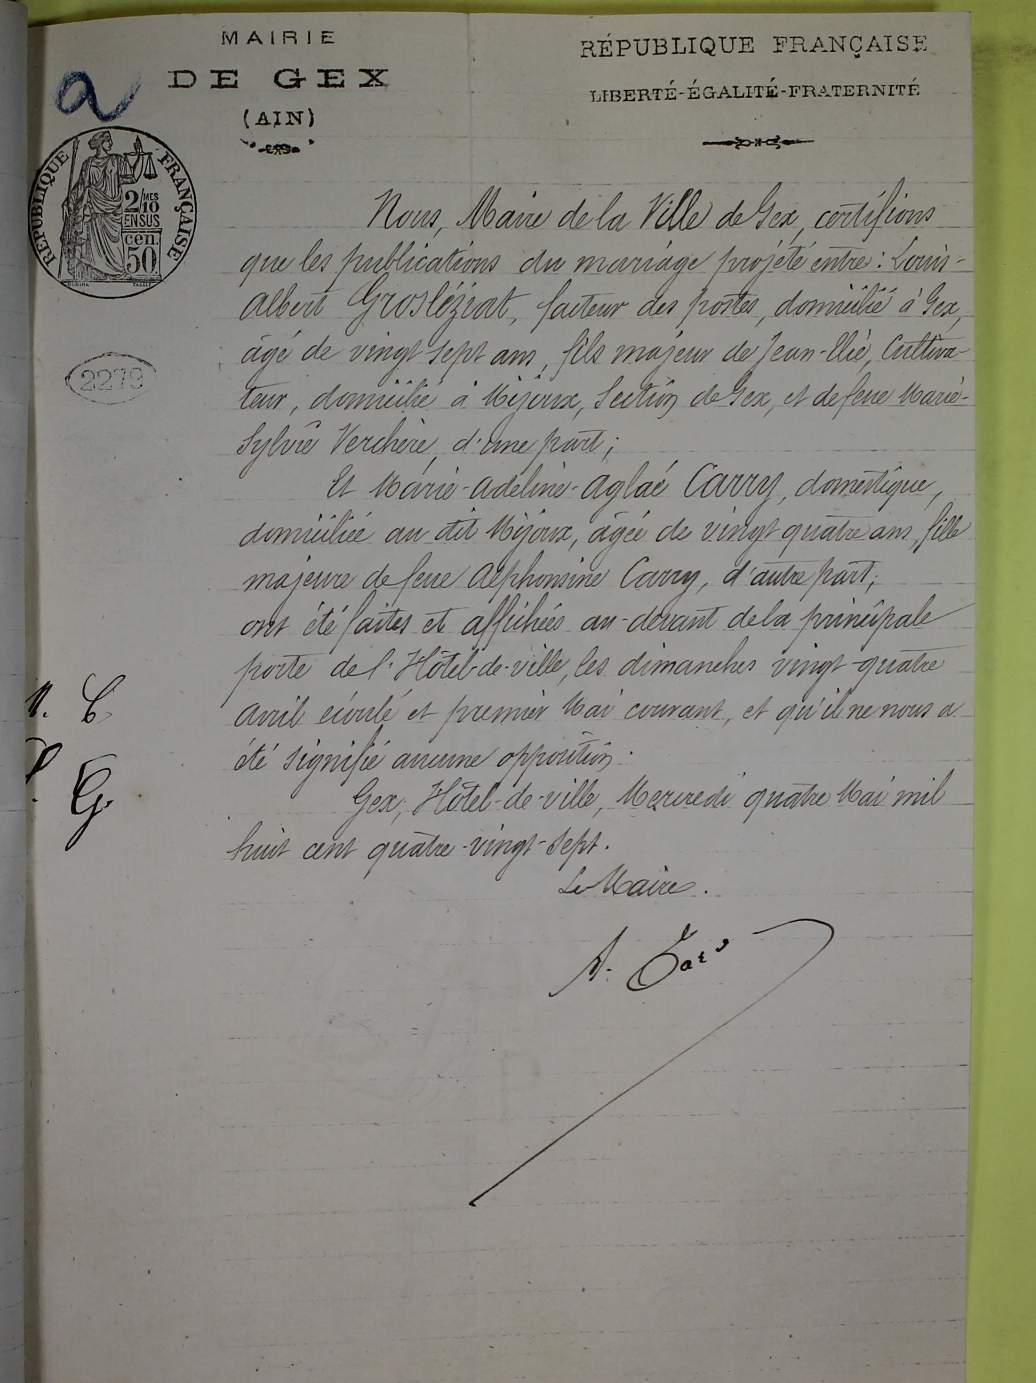 MAIRIE
DE GEX
(AIN)
RÉPUBLIQUE FRANÇAISE
LIBERTÉ-ÉGALITÉ-FRATERNITÉ
a
RÉPUBLIQUE FRANÇAISE
2/10 MES
EN SUS
cen.
50
2279
Nous, Maire de la Ville de Gex, certifions
que les publications du mariage projeté entre : Louis-
Albert Grosléziat, facteur des postes, domicilié à Gex,
âgé de vingt sept ans, fils majeur de Jean-Elie, Cultiva-
teur, domicilié à Mijoux, Section de Gex, et de feue Marie-
Sylvie Verchère, d'une part ;
Et Marie-Adeline-Aglaé Carry, domestique,
domiciliée au dit Mijoux, âgée de vingt quatre ans, fille
majeure de feue Alphonsine Carry, d'autre part ;
ont été faites et affichées au-devant de la principale
porte de l'Hôtel-de-ville, les dimanches vingt-quatre
Avril écoulé et premier Mai courant, et qu'il ne nous a
été signifié aucune opposition.
Gex, Hôtel-de-ville, Mercredi quatre Mai mil
huit cent quatre-vingt-sept.
Le Maire.
M. C
G.
A.